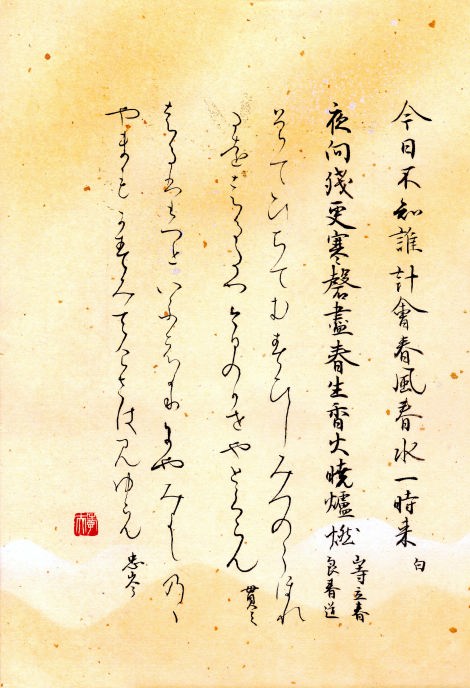 今日不知誰計會春風春水一時来 白
夜向残更寒磬盡春生香火暁爐燃 山寺立春 良春道
そてひちてむすひしみつのこほれ
るをはるたつけふのかせやとくらん 貫之
はるたつといふはかりにやみよし乃ゝ
やまもかすみてけさは見ゆらん 忠岑